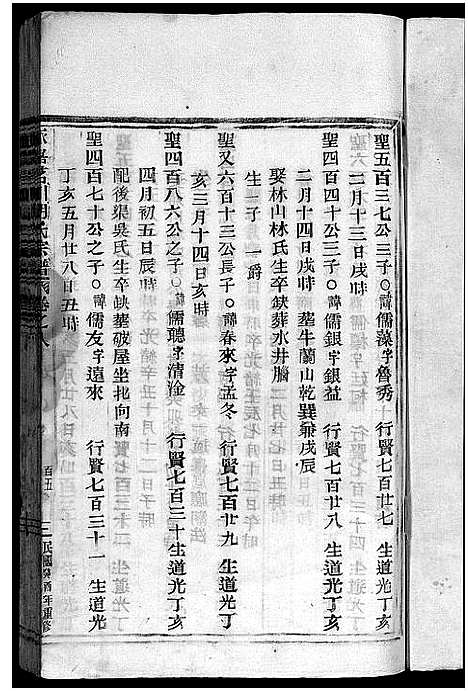 聖五百三七公三子○諱儒藻字魯秀 行賢七百廿七 生道光丁亥
二月十三日戌時
聖四百四十公三子○諱儒銀字銀益 行賢七百廿八 生道光丁亥
二月十四日戌時 葬牛蘭山乾巽兼戌辰
娶林山林氏生卒缺葬水井腦
生一子 一爵
聖又六百十三公長子○諱春來字孟冬 行賢七百廿九 生道光丁
亥三月十四日亥時
聖四百八六公之子○諱儒聽字清淦 行賢七百三十 生道光丁亥
四月初五日辰時
配後渠吳氏生卒缺葬破屋坐北向南
聖四百七十公之子○諱儒友字遠來 行賢七百三十一 生道光
丁亥五月廿八日丑時
氏宗譜 卷之八 百五 民國癸酉年重修